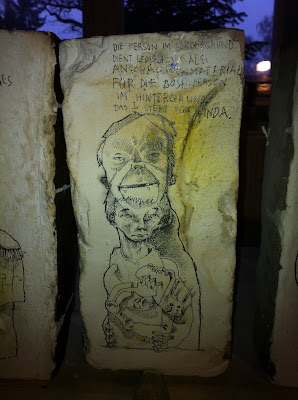 DIE PERSON IM VORDERGRUND
DIENT LEDIGLICH ALS
ANSCHAUUNGSMATERIAL
FÜR DIE BÖSE PERSON
IM HINTERGRUND.
DAS STEHT FÜR INDA.
ES